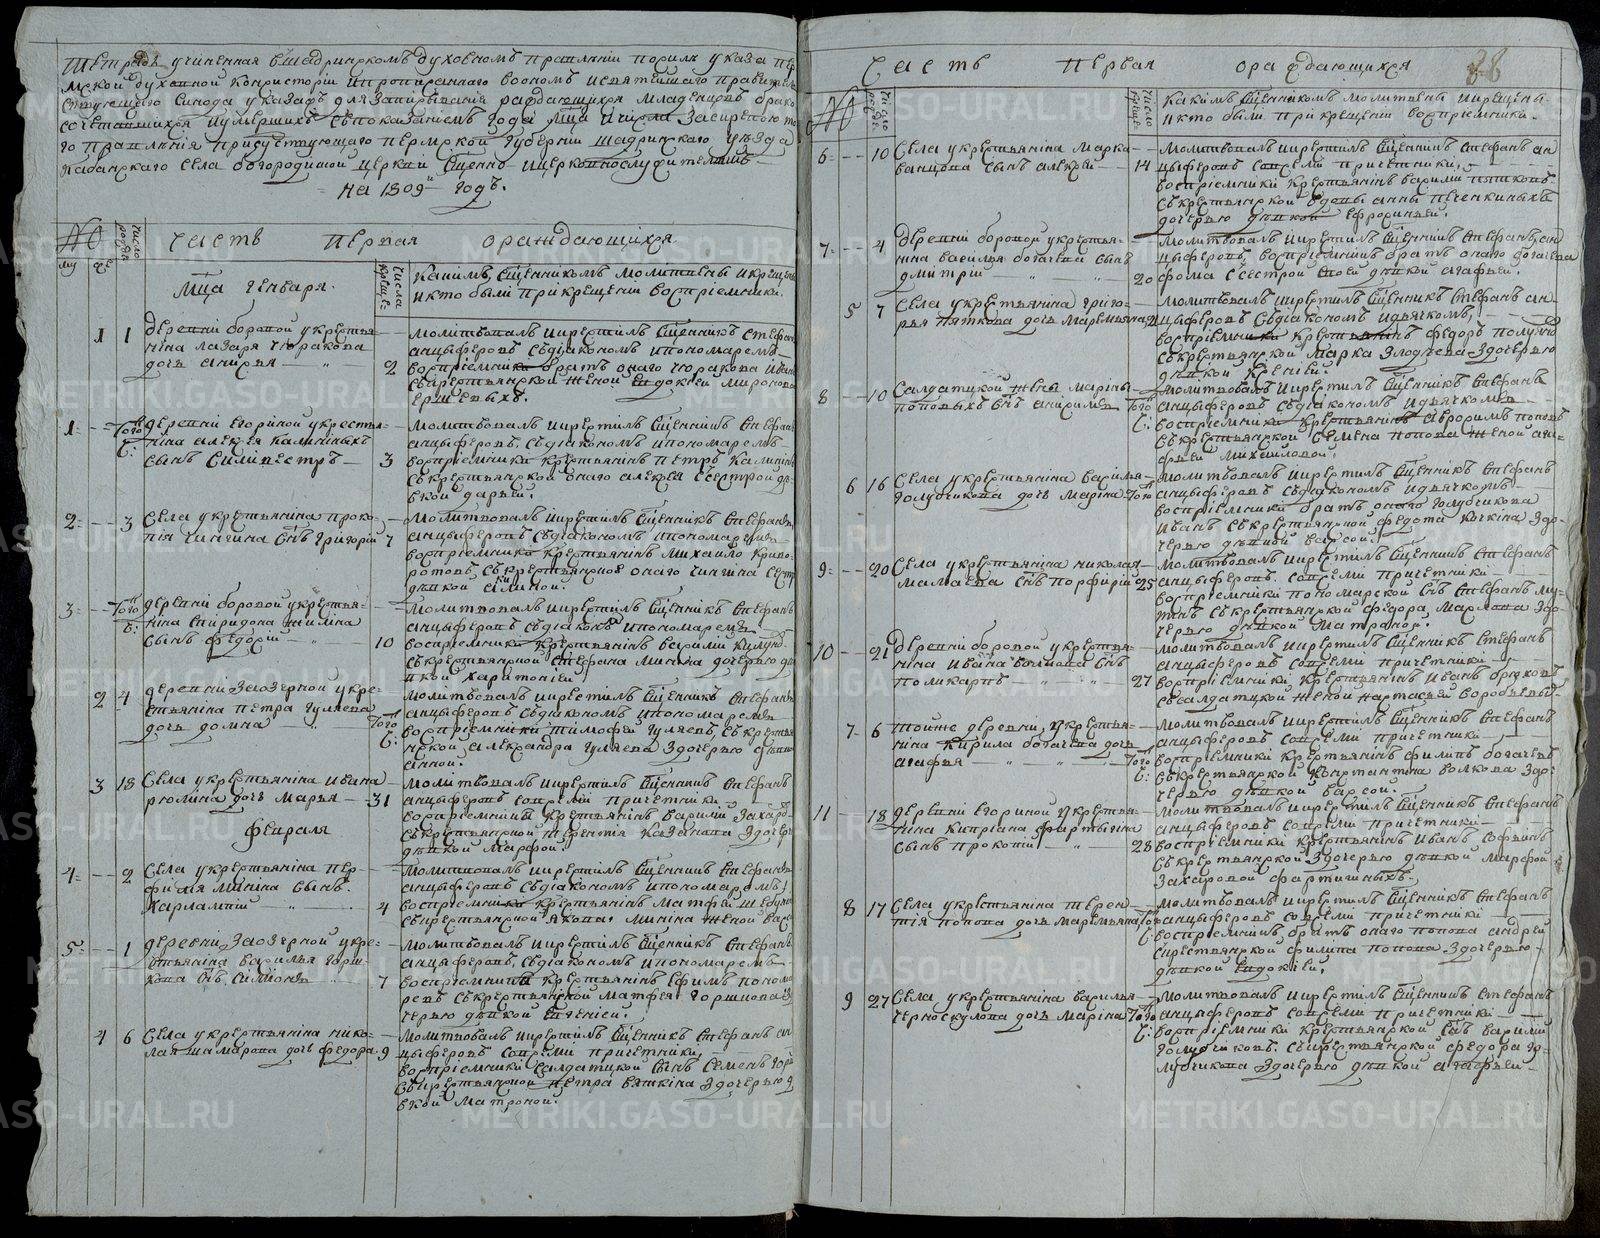 Тетрадь учиненная вшадринскомъ духовномъ правленіи посилѣ указа пер
мской духовной консисторіи ипрописаннаго воономъ изъ святѣйшаго правител
ствующаго Синода указахъ для записыванія раждающихся младенцовъ брако
сочетавшихся иумершихъ спокозаніемъ года мца ичисла
го правленія присутствующаго пермской губерніи шадринскаго уѣзда
села богородицкой церкви сщенно ицерковнослужителямъ
на 1809й годъ.
№ число рожде: часть первая ораждающихся
му же
Мца генваря.
числа креще:
какимъ сщенникомъ молитвены икрещены
икто были прикрещеніи воспріемники.
1 1 деревни боровой укрестья=
нина лазаря чюракова
дочь анисья 2
молитвовалъ икрестилъ сщенникъ стефанъ
анцыферовъ съдіакономъ ипономаремъ
воспріемники братъ онаго чюракова иванъ
съкрестьянской женой евдокіей мироновой
ершевыхъ.
1 того ч: деревни егориной укрестья
нина алексея калининыхъ
сынъ силивестръ 3
молитвовалъ икрестилъ сщенникъ стефанъ
анцыферовъ, съдіакономъ ипономаремъ
воспріемники крестьянинъ петръ калининъ
съкрестьянской онаго алексея сестрой дѣ
вкой дарьей.
2 3 села укрестьянина проко=
пія чингина снъ григорій 7
молитвовалъ икрестилъ сщенникъ стефанъ
анцыферовъ съдіакономъ ипономаремъ
воспріемники крестьянинъ михайло криво=
ротовъ, съкрестьянской онаго чингина сест
дѣвкой
3 того ч: деревни боровой укрестья=
нина спиридона минина
сынъ федосій 10
молитвовалъ икрестилъ сщенникъ стефанъ
анцыферовъ съдіакономъ ипономаремъ
воспріемники крестьянинъ василій
съкрестьянской стефана минина дочерью дѣ
вкой харитоніей
2 4 деревни заозерной укре=
стьянина петра гуляева
дочь домна того ч:
молитвовалъ икрестилъ сщенникъ стефанъ
анцыферовъ съдіакономъ ипономаремъ
воспріемники тимофей гуляевъ, съкрестья
нской александра гуляева здочерью дѣвкой
анной.
3 18 села укрестьянина ивана
рюлина дочь марья 31
молитвовалъ икрестилъ сщенникъ стефанъ
анцыферовъ совсеми причетники
воспріемники крестьянинъ василій захаро
съкрестьянской терентія здочер
дѣвкой марфой
февраля
4 2 села укрестьянина пер=
филія минина сынъ
харлампій 4
молитвовалъ икрестилъ сщенникъ стефанъ
анцыферовъ съдіакономъ ипономаремъ,
воспріемники крестьянинъ матфей
съкрестьянской якова минина женой
5 1 деревни заозерной укре=
стьянина василья горш=
кова снъ симіонъ 7
молитвовалъ икрестилъ сщенникъ стефанъ
анцыферовъ, съдіакономъ ипономаремъ
воспріемники крестьянинъ ефимъ пономо
ревъ съкрестьянской матфея горшкова здо
черью дѣвкой евгеніей.
4 6 села укрестьянина нико=
лая шамарова дочь федора 9
молитвовалъ икрестилъ сщенникъ стефанъ ан
цыферовъ совсеми причетники,
воспріемники салдатской сынъ семенъ
съкрестьянской петра вяткина здочерью дѣ
вкой матроной.
часть первая ораждающихся 88
№ число рожде: число креще:
какимъ сщенникомъ молитвены икрещены
икто были прикрещеніи воспріемники.
6 10 села укрестьянина марка
ванцова сынъ алексей 14
молитвовалъ икрестилъ сщенникъ стефанъ ан
цыферовъ совсеми причетники,
воспріемники крестьянинъ василій пятковъ
съкрестьянской вдовы анны печенкиныхъ
дочерью дѣвкой ефросиньей.
7 4 деревни боровой укрестья=
нина василья богачева сынъ
димитрій 20
молитвовалъ икрестилъ сщенникъ стефанъ ан
цыферовъ, воспріемникъ братъ онаго богачева
фома ссестрой своей дѣвкой агафьей.
5 7 села укрестьянина григо=
рья пяткова дочь маремьяна 21
молитвовалъ икрестилъ сщенникъ стефанъ ан
цыферовъ съдіакономъ идьячкомъ,
воспріемники крестьянинъ федоръ полухинъ
съкрестьянской марка злодѣева здочерью
дѣвкой ксеніей.
8 10 салдатской жены марины
поповыхъ снъ анисимъ того ч:
молитвовалъ икрестилъ сщенникъ стефанъ
анцыферовъ съдіакономъ идьячкомъ
воспріемники крестьянинъ поповъ
съкрестьянской семена попова женой
михайловой.
6 16 села укрестьянина василья
голубчикова дочь марина того
молитвовалъ икрестилъ сщенникъ стефанъ
анцыферовъ съдіакономъ идьячкомъ
воспріемники братъ онаго голубчикова
иванъ съкрестьянской федота кочкина здо=
черью дѣвкой вассой.
9 20 села укрестьянина николая
мамаева снъ порфирій 25
молитвовалъ икрестилъ сщенникъ стефанъ
анцыферовъ совсеми причетники
воспріемники пономарской снъ стефанъ
съкрестьянской федора здо=
черью дѣвкой матроной.
10 21 деревни боровой укрестья=
нина ивана снъ
поликарпъ 27
молитвовалъ икрестилъ сщенникъ стефанъ
анцыферовъ совсеми причетники
воспріемники крестьянинъ иванъ брюховъ
съсалдатской женой настасьей воробьевы.
7 6 тойже деревни укрестья=
нина кирила богачева дочь
агафья того ч:
молитвовалъ икрестилъ сщенникъ стефанъ
анцыферовъ совсеми причетники
воспріемники крестьянинъ филипъ богачевъ
съкрестьянской константина волкова здо=
черью дѣвкой вассой.
11 18 деревни егориной укрестья=
нина кипріана фартыгина
сынъ прокопій 28
молитвовалъ икрестилъ сщенникъ стефанъ
анцыферовъ совсеми причетники
воспріемники крестьянинъ иванъ софьинъ
съкрестьянской здочерью дѣвкой марфой
захаровой фартыгиныхъ.
8 17 села укрестьянина терен=
тія попова дочь маремьяна того ч:
молитвовалъ икрестилъ сщенникъ стефанъ
анцыферовъ совсеми причетники
воспріемникъ братъ онаго попова андрей
скрестьянской филипа попова здочерью
дѣвкой евдокіей.
9 27 села укрестьянина василья
черноскулова дочь марина того ч:
молитвовалъ икрестилъ сщенникъ стефанъ
анцыферовъ совсеми причетники
воспріемники крестьянской снъ василій
голубчиковъ. съкрестьянской федора го=
лубчикова здочерью дѣвкой агафьей